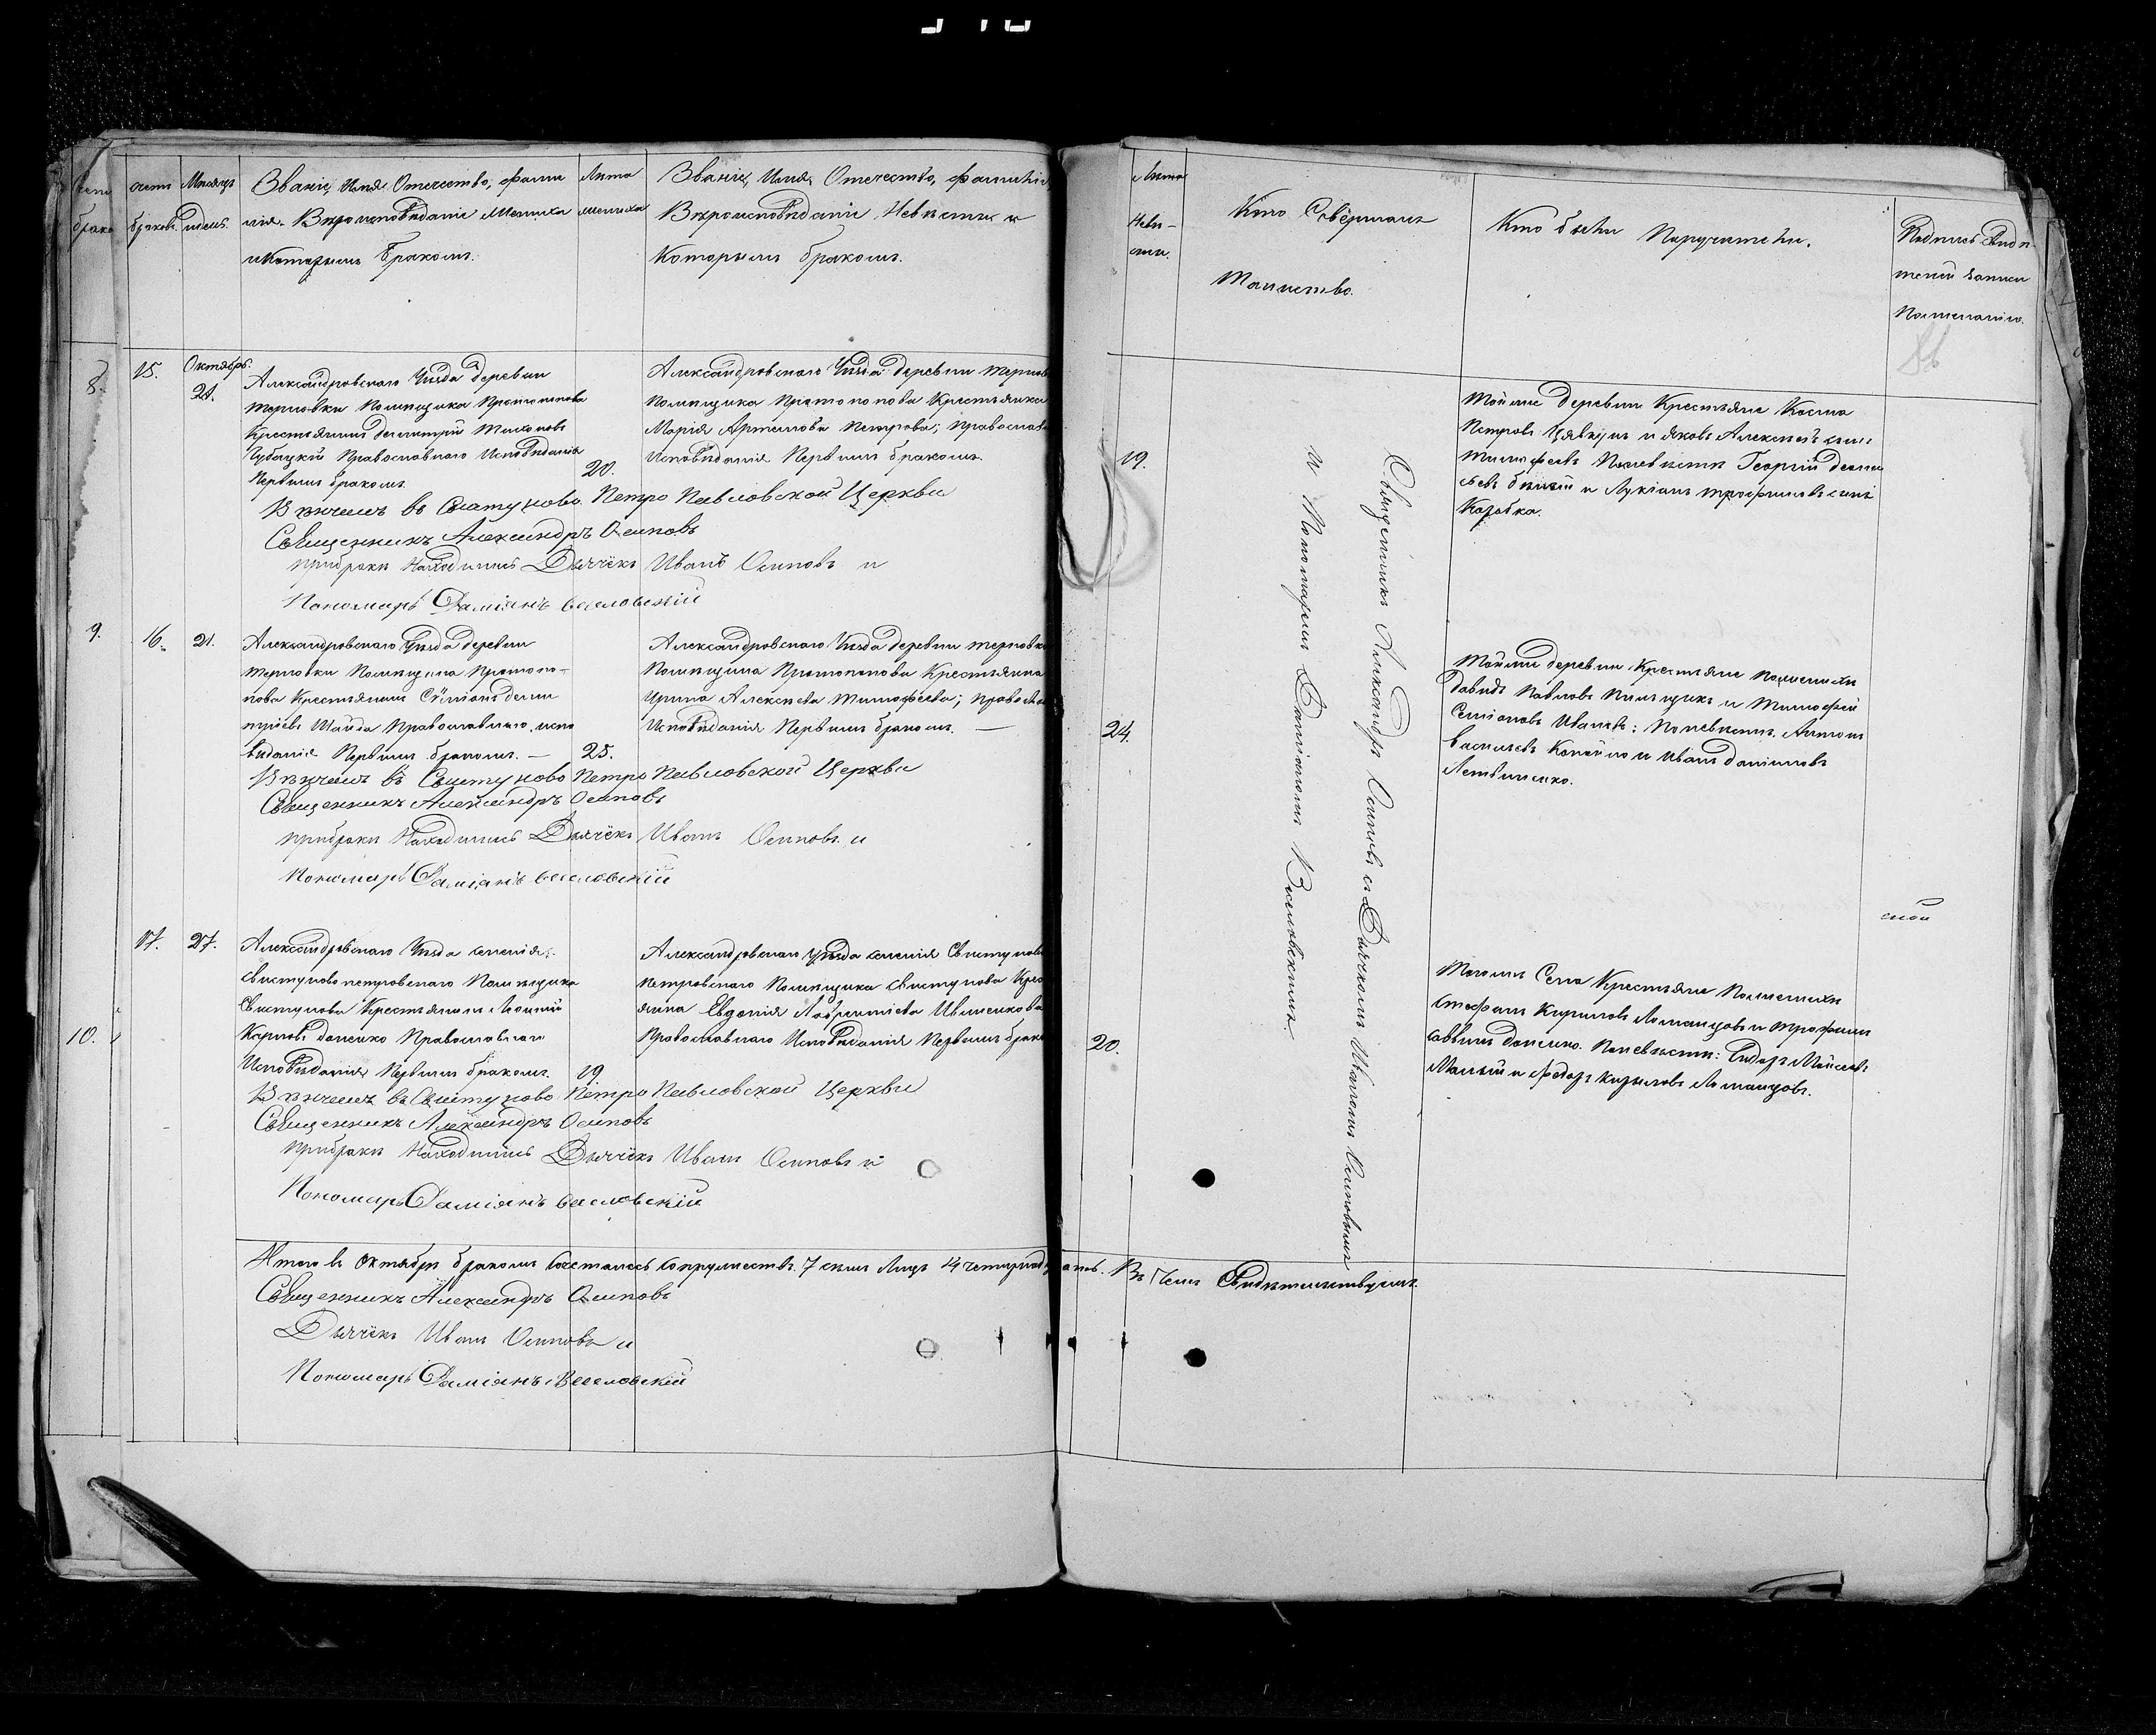 Счетъ Мѣсяцъ
браковъ. и день.
Званіе, Имя, Отечество, фами
лія. Вѣроисповѣданіе Жениха
и Которымъ бракомъ.
Лѣта
жениха
Званіе, Имя, Отечество, Фамилія
Вѣроисповѣданіе, Невѣсты и
Которымъ бракомъ.
Лѣта
Невѣ-
сты.
Кто Совершалъ
Таинство.
Кто были Поручители.
8.
15.
Октябрь.
21.
Александровскаго Уѣзда деревни
терновки Помѣщика Протопопова
Крестьянинъ димитрій
Православнаго Исповѣданія
Первымъ бракомъ.
20.
Александровскаго Уѣзда деревни тернов
Помѣщика Протопопова Крестьянка
Марія Артемова Петрова; православ
Исповѣданія Первымъ бракомъ.
19.
Тойже деревни Крестьяне Косма
Петровъ и Яковъ Алексѣевъ
Поневѣстѣ Георгій
и Лукіанъ трофимовъ сынъ
Коробка.
Вѣнчалъ въ Свистуново Петро Павловской Церкви
Священникъ Александръ Осиповъ
прибракѣ Находились Дьячёкъ Иванъ Осиповъ и
Пономарь Даміянъ веселовскій
9.
16.
21.
Александровскаго Уѣзда деревни
терновки Помѣщика Протопо-
пова Крестьянинъ Сѵміонъ дими
тріевъ Шайда Православнаго испо
вѣданія Первымъ бракомъ. —
25.
Александровскаго Уѣзда деревни терновки
Помѣщика Протопопова Крестьянка
Ирина Алексѣева Тимофѣева; Правосла
Исповѣданія Первымъ бракомъ. —
24.
Тойже деревни Крестьяне Поженихѣ
давидъ Павловъ и Тимофей
Семіоновъ : Поневѣстѣ. Антонъ
васильевъ и иванъ даніиловъ
Вѣнчалъ въ Свистуново Петро Павловской Церкви
Священникъ Александръ Осиповъ
прибракѣ Находились Дьячёкъ Иванъ Осиповъ и
Пономарь Даміянъ веселовскій
10.
17.
27.
Александровскаго Уѣзда селенія
Свистуново петровскаго Помѣщика
Свистунова Крестьянинъ
Карповъ даценко Православнаго
Исповѣданія Первымъ бракомъ.
19
Александровскаго Уѣзда селенія Свистунова
петровскаго Помѣщика Свистунова Крес
янка Евдокія Лаврентіева
Православнаго Исповѣданія Первымъ брак
20.
Тогожъ Села Крестьяне Поженихѣ
Стефанъ Кириловъ Ломанцовъ и Трофимъ
Поневѣстѣ: Сидоръ
и Федоръ Кириловъ Ломанцовъ.
Вѣнчалъ въ Свистуново Петро Павловской Церкви
Священникъ Александръ Осиповъ
прибракѣ Находились Дьячёкъ Иванъ Осиповъ и
Пономарь Даміянъ веселовскій
Священникъ Александръ Осиповъ съ Дьячкомъ Иваномъ Осиповымъ
и Пономаремъ Даміаномъ Веселовскимъ.
Итого въ Октябрѣ бракомъ Сочеталось Сопружествъ. 7 семь Лицъ 14 четырнадцать. Въ Чемъ Свидѣтельствуемъ.
Священникъ Александръ Осиповъ
Дьячёкъ Иванъ Осиповъ и
Пономарь Даміянъ Веселовскій